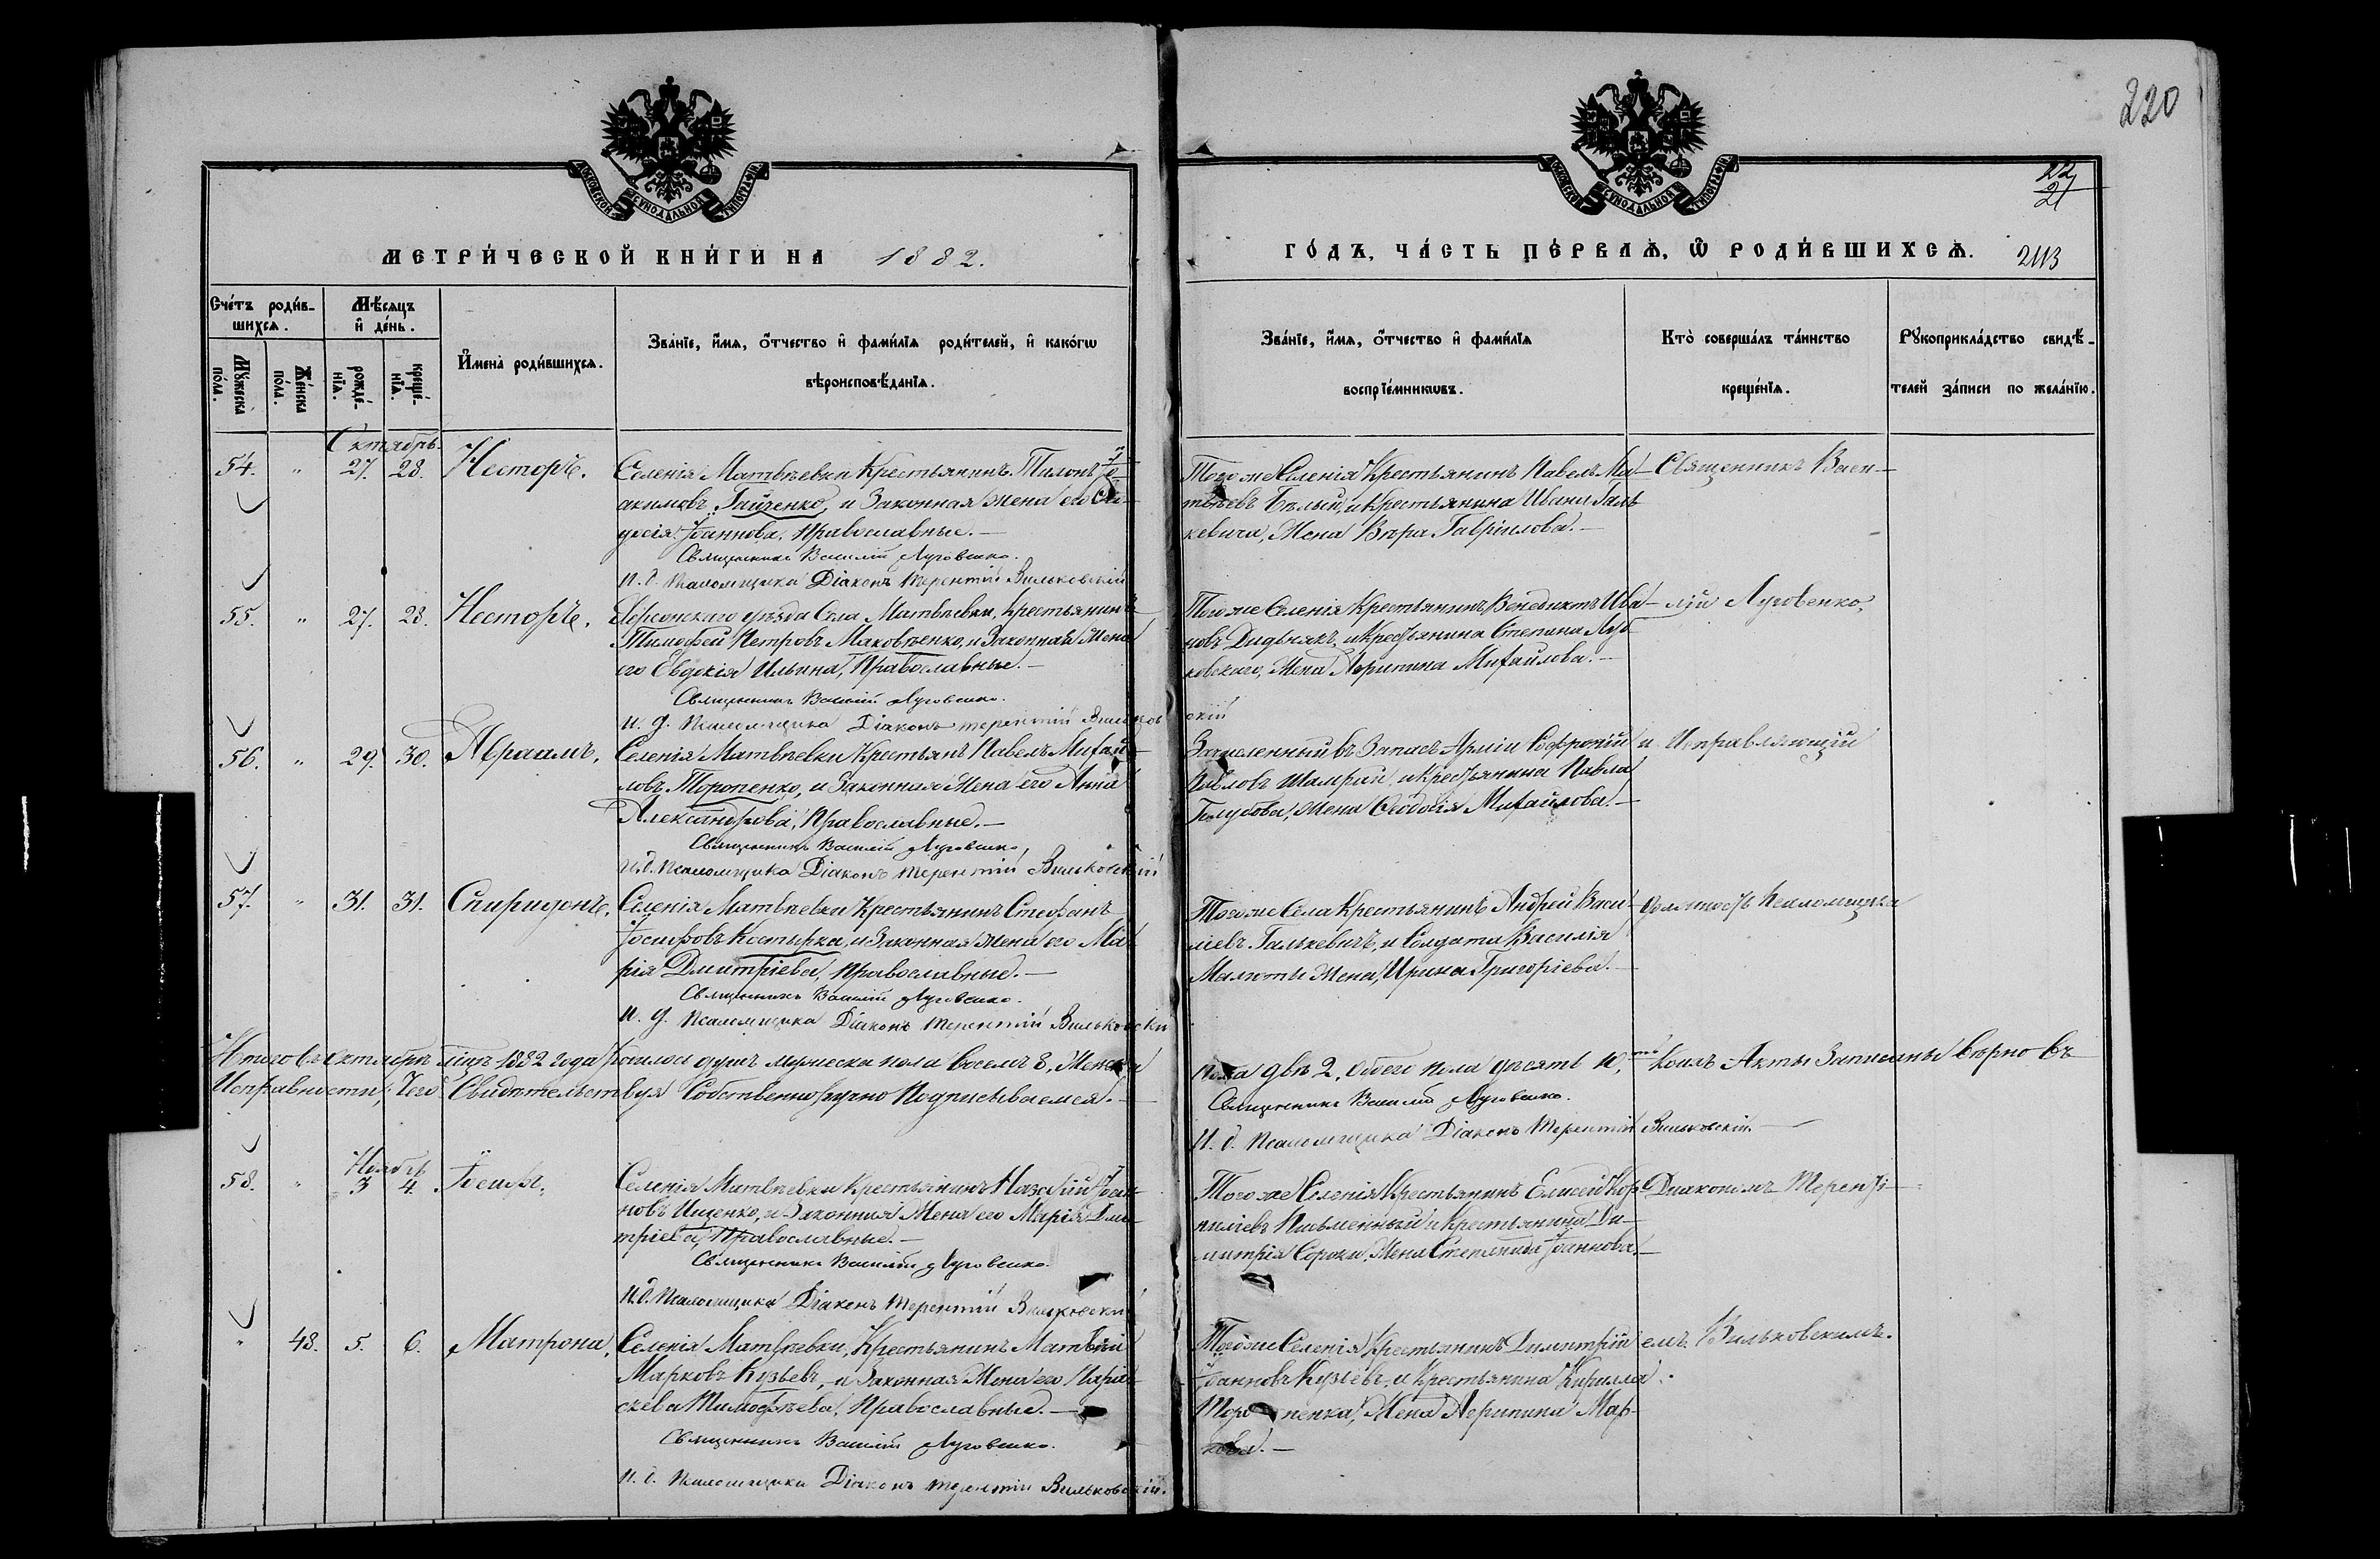 220
22
21
МОСКОВСКОЙ СѴНОДАЛЬНОЙ ТИПОГРАФІИ
МОСКОВСКОЙ СѴНОДАЛЬНОЙ ТИПОГРАФІИ
МЕТРИ́ЧЕСКОЙ КНИ́ГИ НА 1882.
ГО́ДЪ, ЧА́СТЬ ПЕ́РВАѦ, Ѿ РОДИ́ВШИХСѦ. 2113
Сче́тъ роди́в-
шихсѧ.
Мѣ́сѧцъ
и҆ де́нь.
И҆мена̀ роди́вшихсѧ.
Зва́нїе, и҆́мѧ, ѻ҆́тчество и҆ фами́лїѧ роди́телей, и҆ како́гѡ
вѣроисповѣ́данїѧ.
Мꙋ́жеска
по́ла.
Же́нска
по́ла.
рожде́-
нїѧ.
креще́-
нїѧ.
Зва́нїе, и҆́мѧ, ѻ҆́тчество и҆ фами́лїѧ
воспрїе́мникѡвъ.
Кто̀ соверша́лъ та́инство
креще́нїѧ.
Рꙋкоприкла́дство свидѣ́-
телей за́писи по жела́нїю.
Октябрь.
54. " 27. 28. Несторъ. Селенія Матвѣевки Крестьянинъ Іо-
акимовъ Гайченко, и Законная жена его
Іоаннова, Православные. —
Священникъ Василій Луговенко.
И. д. Псаломщика Діаконъ Терентій Вильковскій
Того же Селенія Крестьянинъ Павелъ Ма-
твѣевъ Бѣлый, и Крестьянина Ивана Галь
кевича, Жена Вѣра Гавріилова. —
Священникъ Васи-
55. " 27. 28. Несторъ, Херсонскаго уѣзда Села Матвѣевки, Крестьянинъ
Тимофей Петровъ Маковѣенко, и Законная Жена
его Евдокія Ильина, Православные. —
Священникъ Василій Луговенко.
И. д. Псаломщика Діаконъ Терентій Вильков
скій
Того же Селенія Крестьянинъ Венедиктъ Ива-
новъ Дидыкъ, и Крестьянина Степана
ковскаго, Жена Агрипина Михайлова. —
лій Луговенко,
56. " 29. 30. Авраамъ, Селенія Матвѣевки Крестьянъ Павелъ Михай-
ловъ Торопенко, и Законная Жена его Анна
Александрова, Православные. —
Священникъ Василій Луговенко,
И. д. Псаломщика Діаконъ Терентій Вильковскій
Зачисленный въ Запасъ Арміи Софроній
Павловъ Шамрай, и Крестьянина Павла
Голубова, Жена Феодосія Михайлова. —
и Исправляющій
57. " 31. 31. Спиридонъ, Селенія Матвѣевки Крестьянинъ Стефанъ
Іосифовъ Костырка, и Законная Жена его Ма-
рія Дмитріева, Православные. —
Священникъ Василій Луговенко.
И. д. Псаломщика Діаконъ Терентій Вильковскій
Того же Села Крестьянинъ Андрей Васи-
ліевъ Галькевичъ, и Солдата Василія
Малюты Жена, Ирина Григоріева. —
должность Псаломщика
Итого въ Октябрѣ мцѣ 1882 года родилось душъ мужеска пола восемь 8, Женска
пола двѣ 2, Обоего пола десять 10, Коихъ Акты Записаны вѣрно въ
Исправности, Чего Свидѣтельствуя Собственноручно Подписываемся. —
Священникъ Василій Луговенко.
И. д. Псаломщика Діаконъ Терентій Вильковскій. —
Ноябрь
58. " 3 4. Іосифъ, Селенія Матвѣевки Крестьянинъ Назарій Іоан-
новъ Ищенко, и Законная Жена его Марія Дми-
тріева, Православные. —
Священникъ Василій Луговенко.
И. д. Псаломщика Діаконъ Терентій Вильковскій
Того же Селенія Крестьянинъ Елисей Кор-
нилієвъ Письменный и Крестьянина Ди-
митрія Сороки, Жена Степанида Іоаннова. —
Діакономъ Терентi-
" 48. 5. 6. Матрона, Селенія Матвѣевки, Крестьянинъ Матвѣй
Марковъ Кузьевъ, и Законная Жена его Пара-
скева Тимофѣева, Православные. —
Священникъ Василій Луговенко.
И. д. Псаломщика Діаконъ Терентій Вильковскій.
Того же Селенія Крестьянинъ Димитрій
Іоанновъ Кузьевъ, и Крестьянина Кирилла
Торопенка, Жена Агрипина Мар-
кова. —
емъ Вильковскимъ.